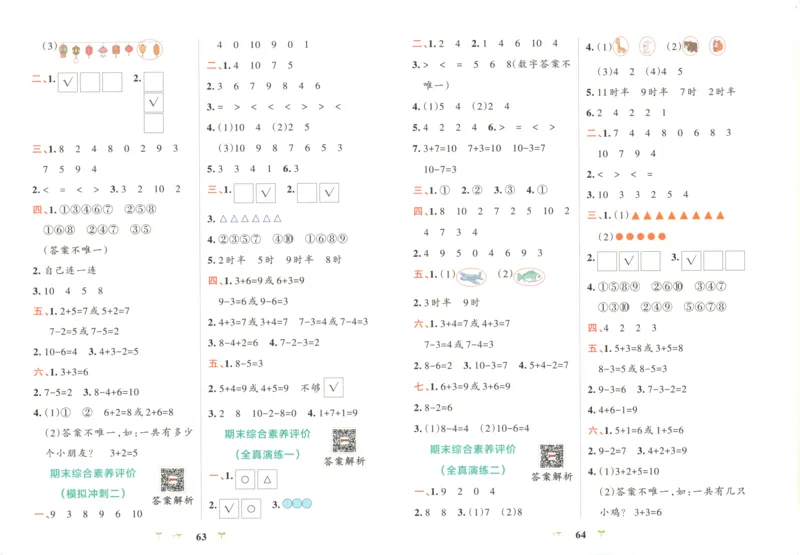 (3)
二、1. √ 2. √
三、1. 8 2 4 8 0 2 9 3
7 5 9 4
2. < = < > 3. 3 2 10 2
四、1. ①③④⑥⑦ ②⑤⑧
①⑥⑧ ②④⑦ ③⑤
(答案不唯一)
2. 自己连一连
3. 10 4 5 8
五、1. 2+5=7或5+2=7
7-2=5或7-5=2
2. 10-6=4 3. 4+3-2=5
六、1. 3+3=6
2. 7-5=2 3. 8-4+6=10
4. (1)① ② 6+2=8或2+6=8
(2)答案不唯一,如:一共有多少
个小朋友? 3+2=5
期末综合素养评价
(模拟冲刺二)
答案解析
一、1. 9 3 8 9 6 10
4 0 10 9 0 1
二、1. 4 10 7 5
2. 3 6 7 9 8 4 6
3. = > < < < > > <
4. (1)10 4 (2)2 5
(3)10 9 8 7 6 5 3
5. 3 3 4 1 6. 3
三、1. √ 2. √
3. △△△△△△
4. ②③⑤⑦ ④⑩ ①⑥⑧⑨
5. 2时半 5时 9时半 8时
四、1. 3+6=9或6+3=9
9-3=6或9-6=3
2. 4+3=7或3+4=7 7-3=4或7-4=3
3. 8-4+2=6 4. 7-2-3=2
五、1. 8-5=3
2. 5+4=9或4+5=9 不够 √
3. 2 8 10-2-8=0 4. 1+7+1=9
期末综合素养评价
(全真演练一)
答案解析
一、1. ○ △
2. √ 3. ○○○
63
二、1. 2 4 2. 1 4 6 10 4
3. > < = 5 6 8(数字答案不
唯一)
4. (1)5 4 (2)2 4
5. 4 2 2 4 6. > = < >
7. 3+7=10 7+3=10 10-3=7
10-7=3
三、1. ① 2. ② 3. ③ 4. ①
四、1. 8 10 2 7 2 5 10 2
4 7 3 4
2. 4 9 5 0 4 6 9 3
五、1. (1) (2)
2. 3时半 9时
六、1. 3+4=7或4+3=7
7-3=4或7-4=3
2. 8-6=2 3. 10-3=7 4. 5+4-2=7
七、1. 6+3=9或3+6=9
2. 8-2=6
3. (1)8-4=4 (2)10-6=4
期末综合素养评价
(全真演练二)
答案解析
一、1. 9 2 0 4
2. 8 8 3. (1)7 (2)8
4. (1) (2)
(3)4 2 (4)4 5
5. 11时半 9时半 7时 2时半
6. 2 4 2 2 1
二、1. 7 4 4 8 0 6 8 3
10 7 9 4
2. < > < =
3. 10 3 3 2 5 4
三、1. (1)▲▲▲▲▲▲▲▲
(2)●●●●●
2. √ 3. √
4. ①⑤⑧⑨ ②⑥⑩ ③④⑦
①③⑩ ②④⑨ ⑤⑥⑦⑧
四、4 2 2 3
五、1. 5+3=8或3+5=8
8-3=5或8-5=3
2. 9-3=6 3. 7-3-2=2
4. 4+6-1=9
六、1. 5+1=6或1+5=6
2. 9-2=7 3. 4+2+3=9
4. (1)3+2+5=10
(2)答案不唯一,如:一共有几只
小鸡? 3+3=6
64